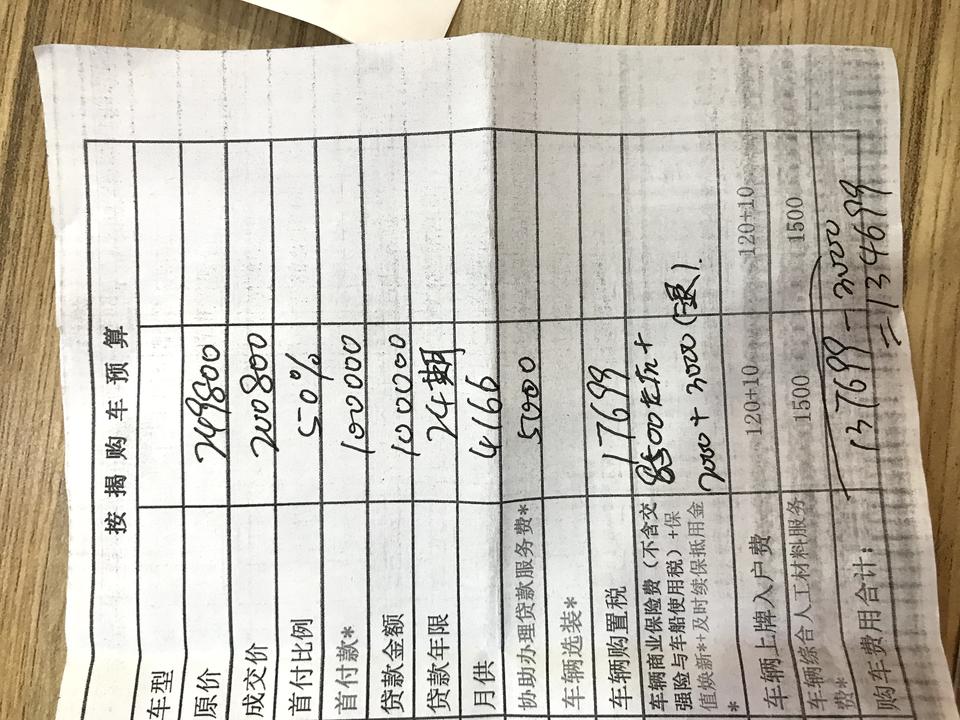 按揭购车预算
车型
原价 249800
成交价 200800
首付比例 50%
首付款* 100000
贷款金额 100000
贷款年限 24期
月供 4166
协助办理贷款服务费* 5000
车辆选装*
车辆购置税 17699
车辆商业保险费（不含交 8500左右+
强险与车船使用税）+保
值焕新*+及时续保抵用金 2000+3000(退).
*
车辆上牌入户费 120+10 120+10
车辆综合人工材料服务 1500 1500
费*
购车费用合计： 137699-3000
=134699